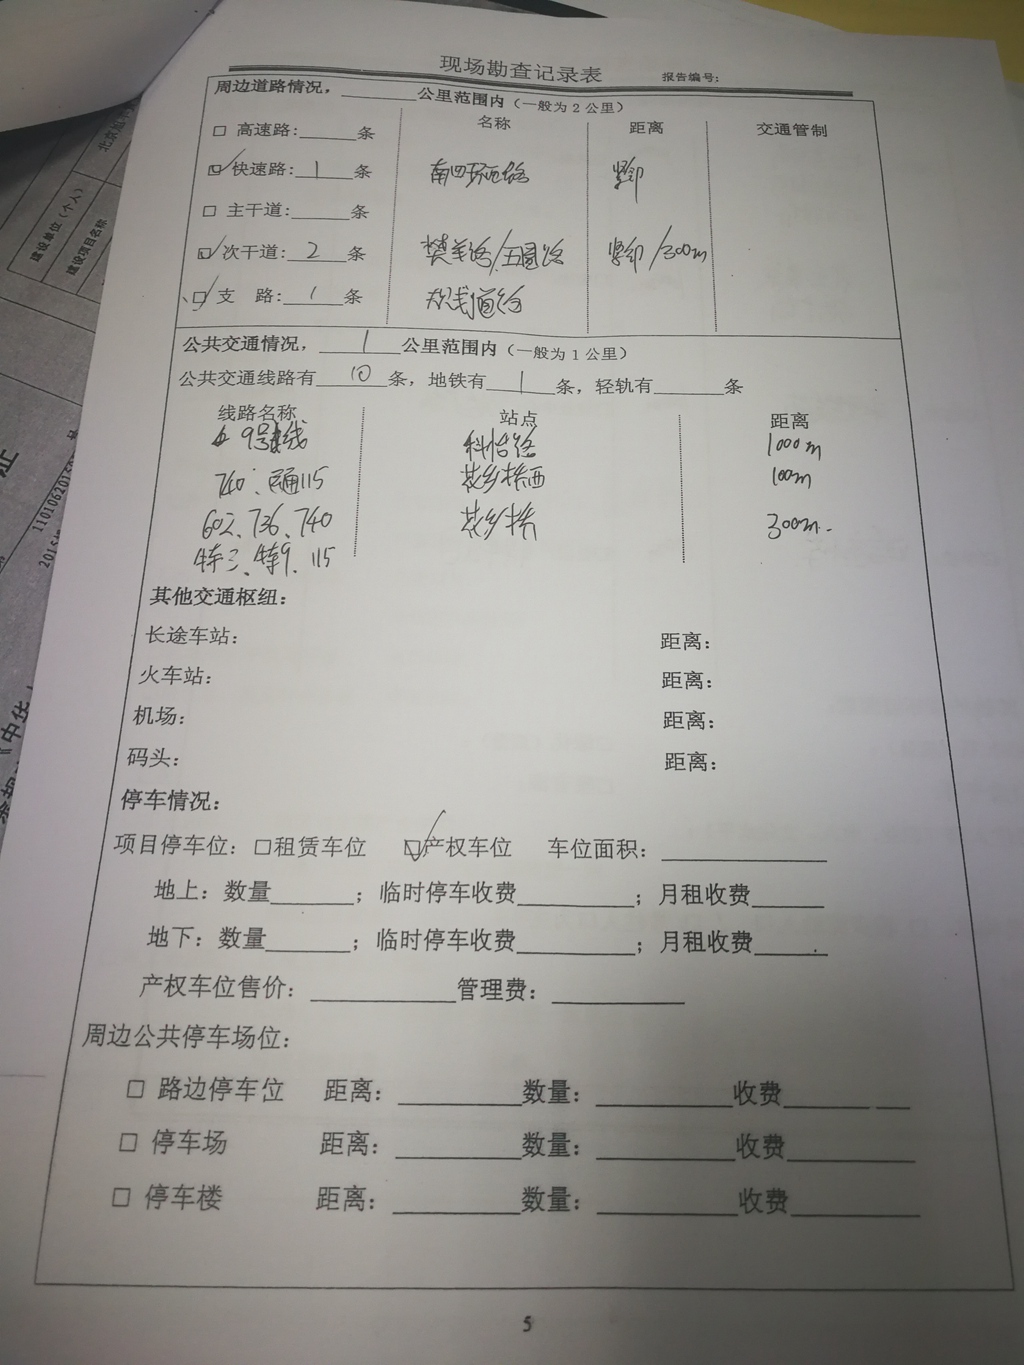 现场勘查记录表 报告编号:
周边道路情况，______公里范围内（一般为2公里）
名称 距离 交通管制
□ 高速路:____条
☑ 快速路: 1 条 南四环西路 紧邻
□ 主干道:____条
☑ 次干道: 2 条 樊羊路/五圈路 紧邻/300m
☑ 支 路: 1 条
公共交通情况， 1 公里范围内（一般为1公里）
公共交通线路有 10 条，地铁有 1 条，轻轨有____条
线路名称 站点 距离
9号线 科怡路 1000m
740、115 花乡桥西 100m
602、736、740 花乡桥 300m.
特三、特9、115
其他交通枢纽:
长途车站: 距离:
火车站: 距离:
机场: 距离:
码头: 距离:
停车情况:
项目停车位: □租赁车位 ☑产权车位 车位面积:________
地上: 数量____; 临时停车收费______; 月租收费____
地下: 数量____; 临时停车收费______; 月租收费____
产权车位售价: ________管理费: ________
周边公共停车场位:
□ 路边停车位 距离: ______数量: ______收费______
□ 停车场 距离: ______数量: ______收费______
□ 停车楼 距离: ______数量: ______收费______
5
建设单位（个人）
建设项目名称